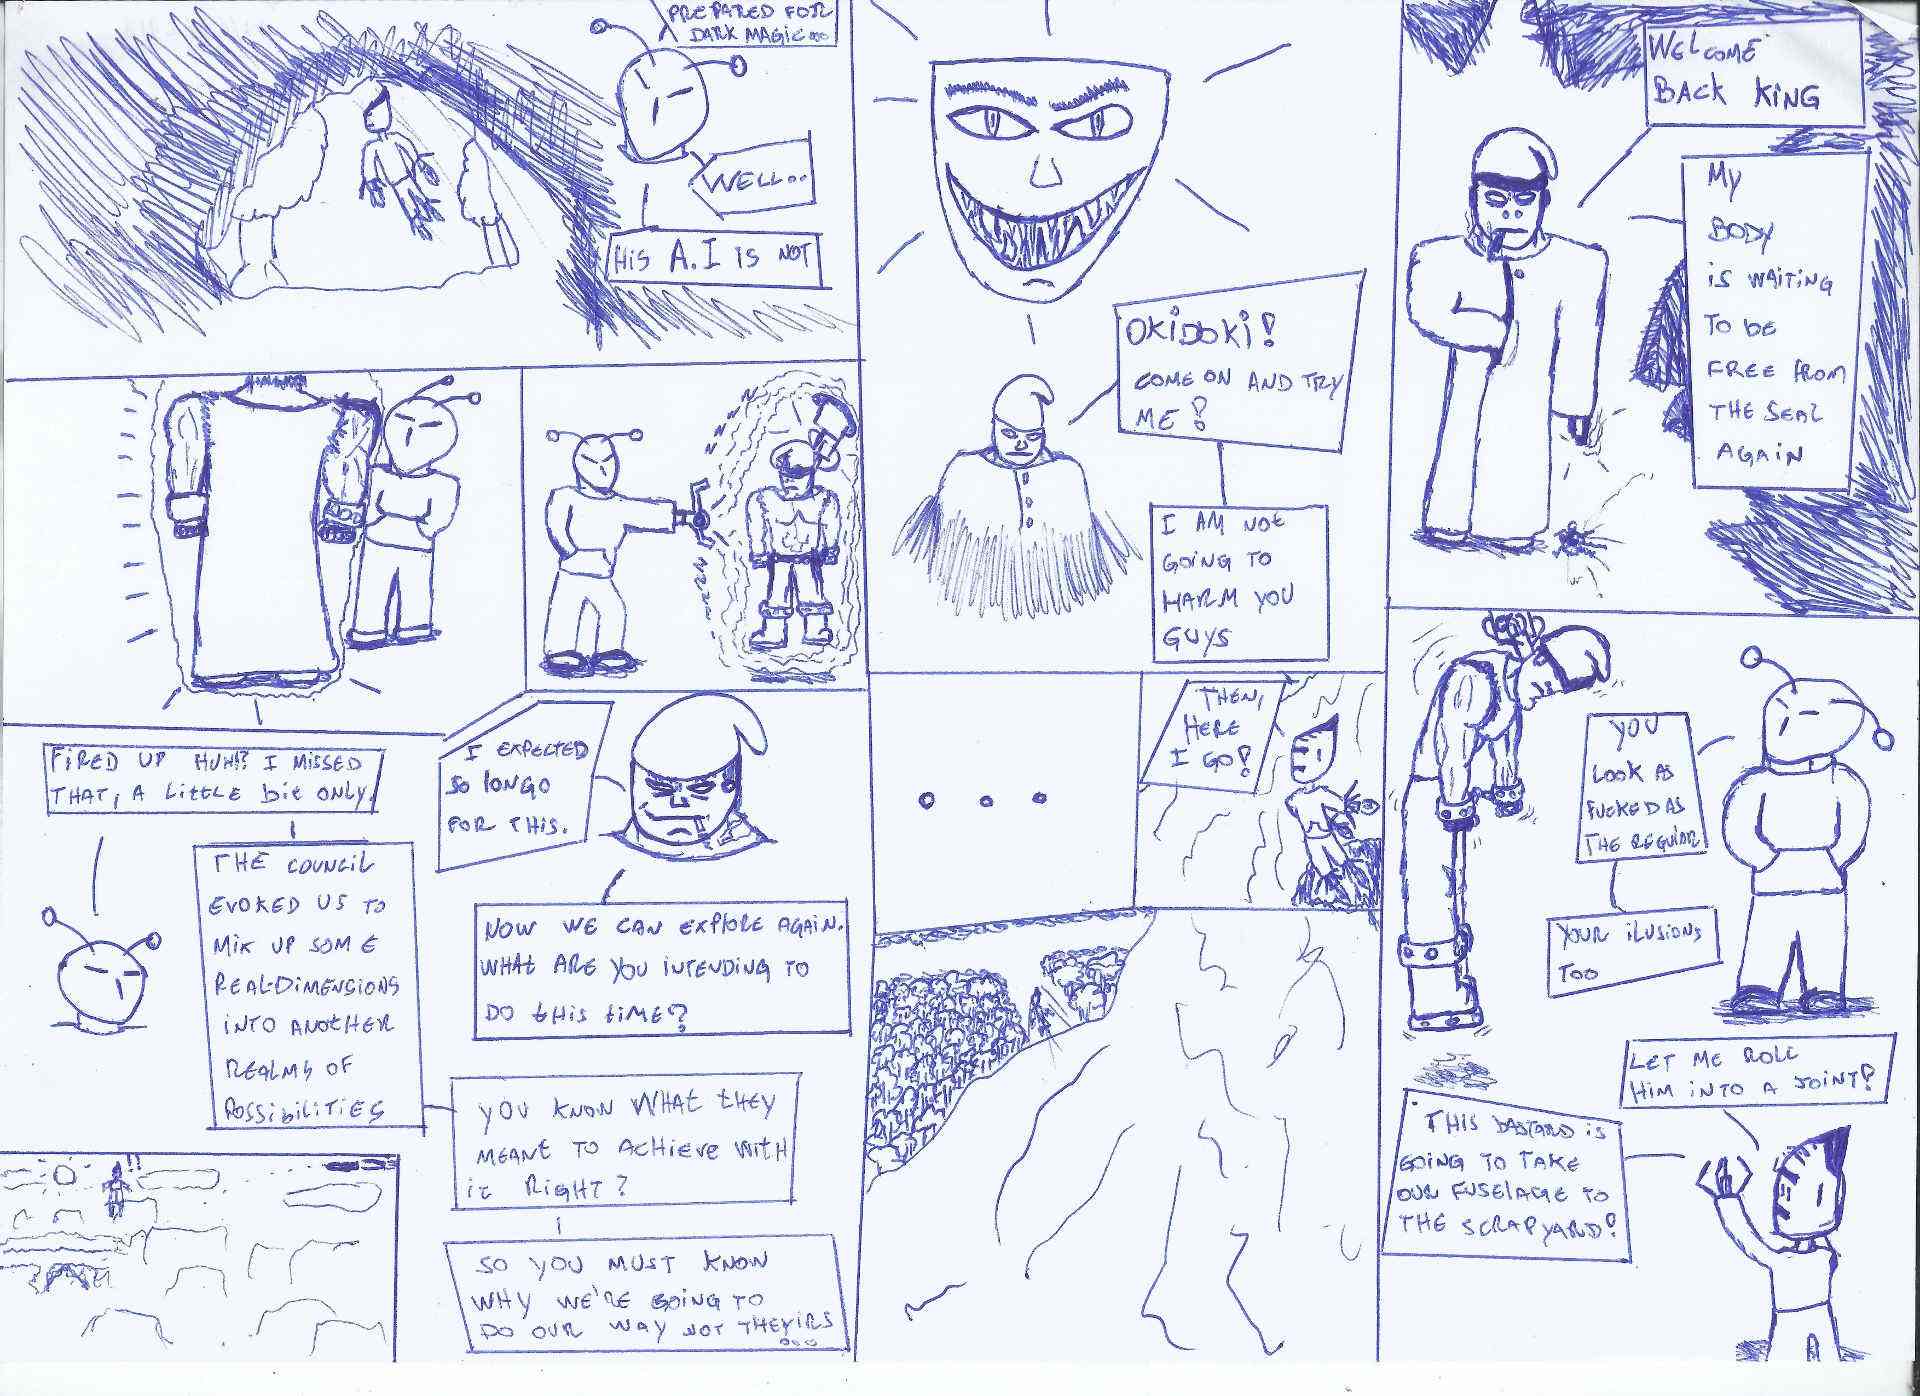 PREPARED FOR
DARK MAGIC...
WELL...
HIS A.I IS NOT
FIRED UP HUH? I MISSED
THAT, A LITTLE BIT ONLY.
THE COUNCIL
EVOKED US TO
MIX UP SOME
REAL-DIMENSIONS
INTO ANOTHER
REALMS OF
POSSIBILITIES
I EXPECTED
SO LONGO
FOR THIS.
NOW WE CAN EXPLORE AGAIN.
WHAT ARE YOU INTENDING TO
DO THIS TIME?
YOU KNOW WHAT THEY
MEANT TO ACHIEVE WITH
IT RIGHT?
SO YOU MUST KNOW
WHY WE'RE GOING TO
DO OUR WAY NOT THEYIRS
...
!!
OKIDOKI!
COME ON AND TRY
ME!
I AM NOT
GOING TO
HARM YOU
GUYS
...
THEN,
HERE
I GO!
WELCOME
BACK KING
MY
BODY
IS WAITING
TO BE
FREE FROM
THE SEAL
AGAIN
YOU
LOOK AS
FUCKED AS
THE REGULAR
YOUR ILUSIONS
TOO
LET ME ROLL
HIM INTO A JOINT!
THIS BASTARD IS
GOING TO TAKE
OUR FUSELAGE TO
THE SCRAPYARD!